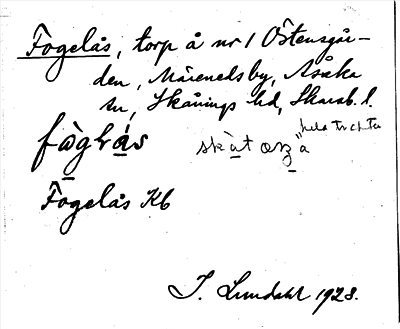 Fogelås, torp å nr 1 Östensgår-
den, Märenedsby, Asaka
sn, Skånings hd, Skarab. l.
fògḷás skàtoza "hela trakten
Fogelås Kb
I. Lundahl 1928.